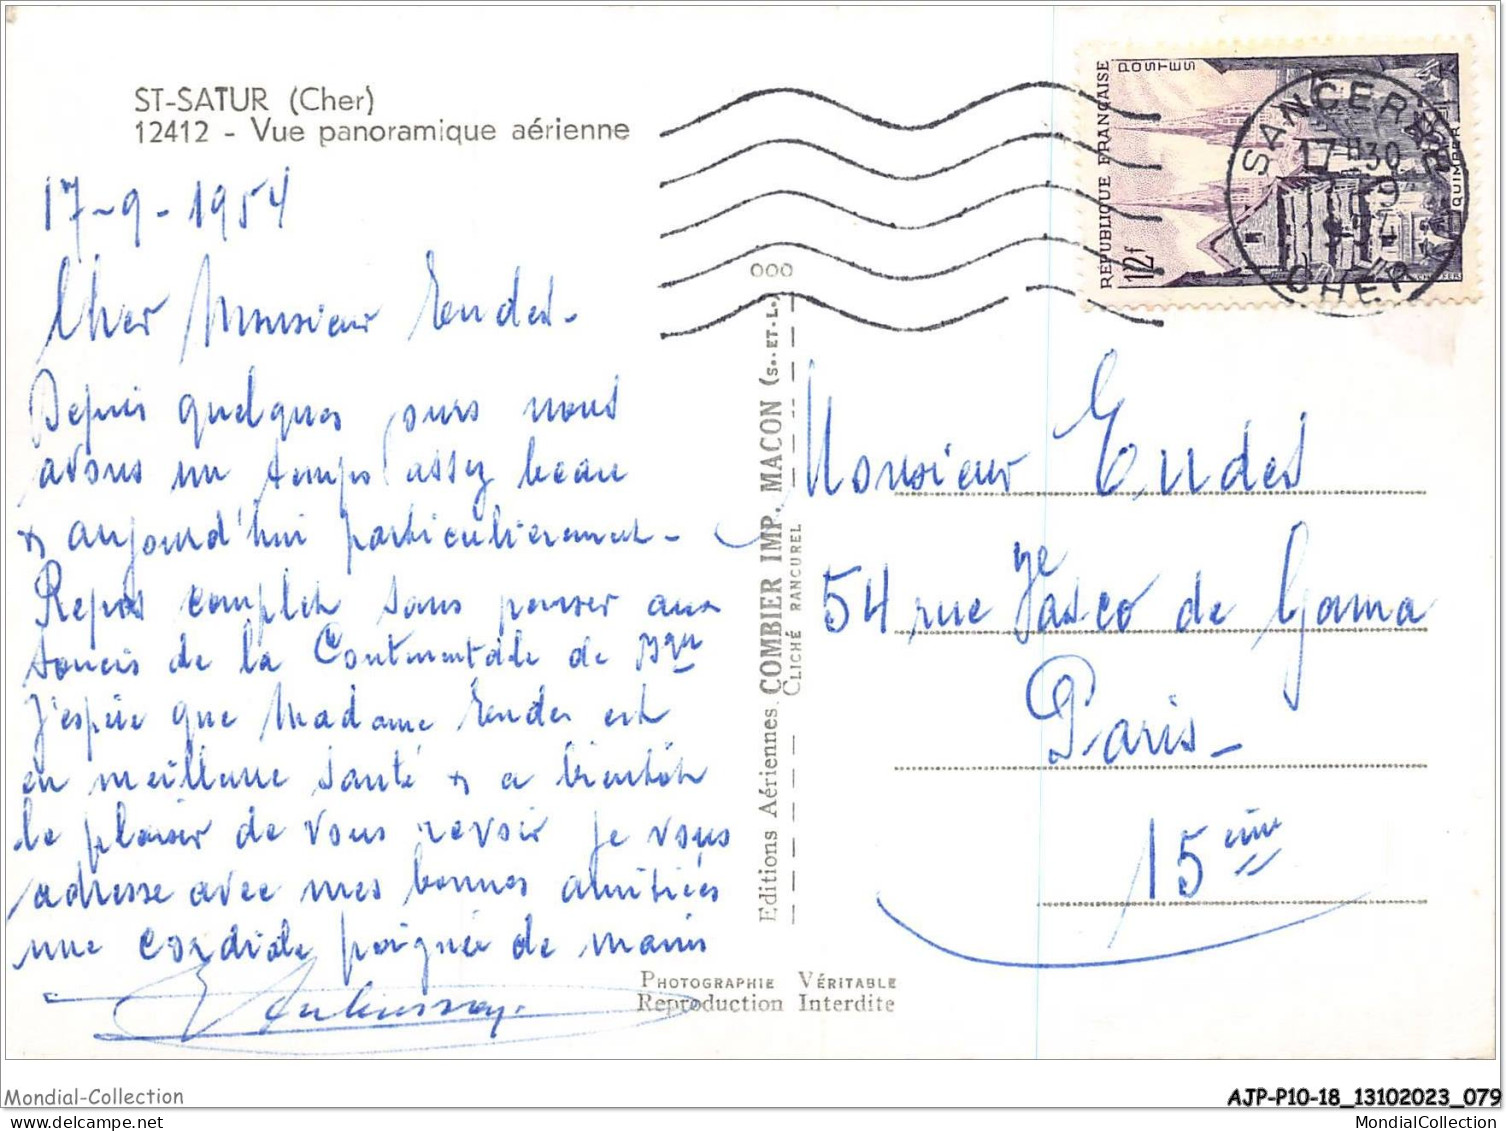 ST-SATUR (Cher)
12412 - Vue panoramique aérienne
17-9-1954
Cher Monsieur Eudes-
Depuis quelques jours nous
avons un temps assez beau
& aujourd'hui particulièrement-
Repos complet sans penser aux
soucis de la Continentale de
J'espère que Madame Eudes est
en meilleure santé & a bientôt
le plaisir de vous revoir je vous
adresse avec mes bonnes amitiées
une cordiale poignée de mains
000
Editions Aériennes COMBIER IMP. MACON (S.-ET-L.)
CLICHÉ RANCUREL
PHOTOGRAPHIE VÉRITABLE
Reproduction Interdite
REPUBLIQUE FRANÇAISE
POSTES
12f
QUIMPER
SANCERRE
17H30
CHER
Monsieur Eudes
54 rue Vasco de Gama
Paris-
15ème
Mondial-Collection
AJP-P10-18_13102023_079
MondialCollection
MondialCollection.com